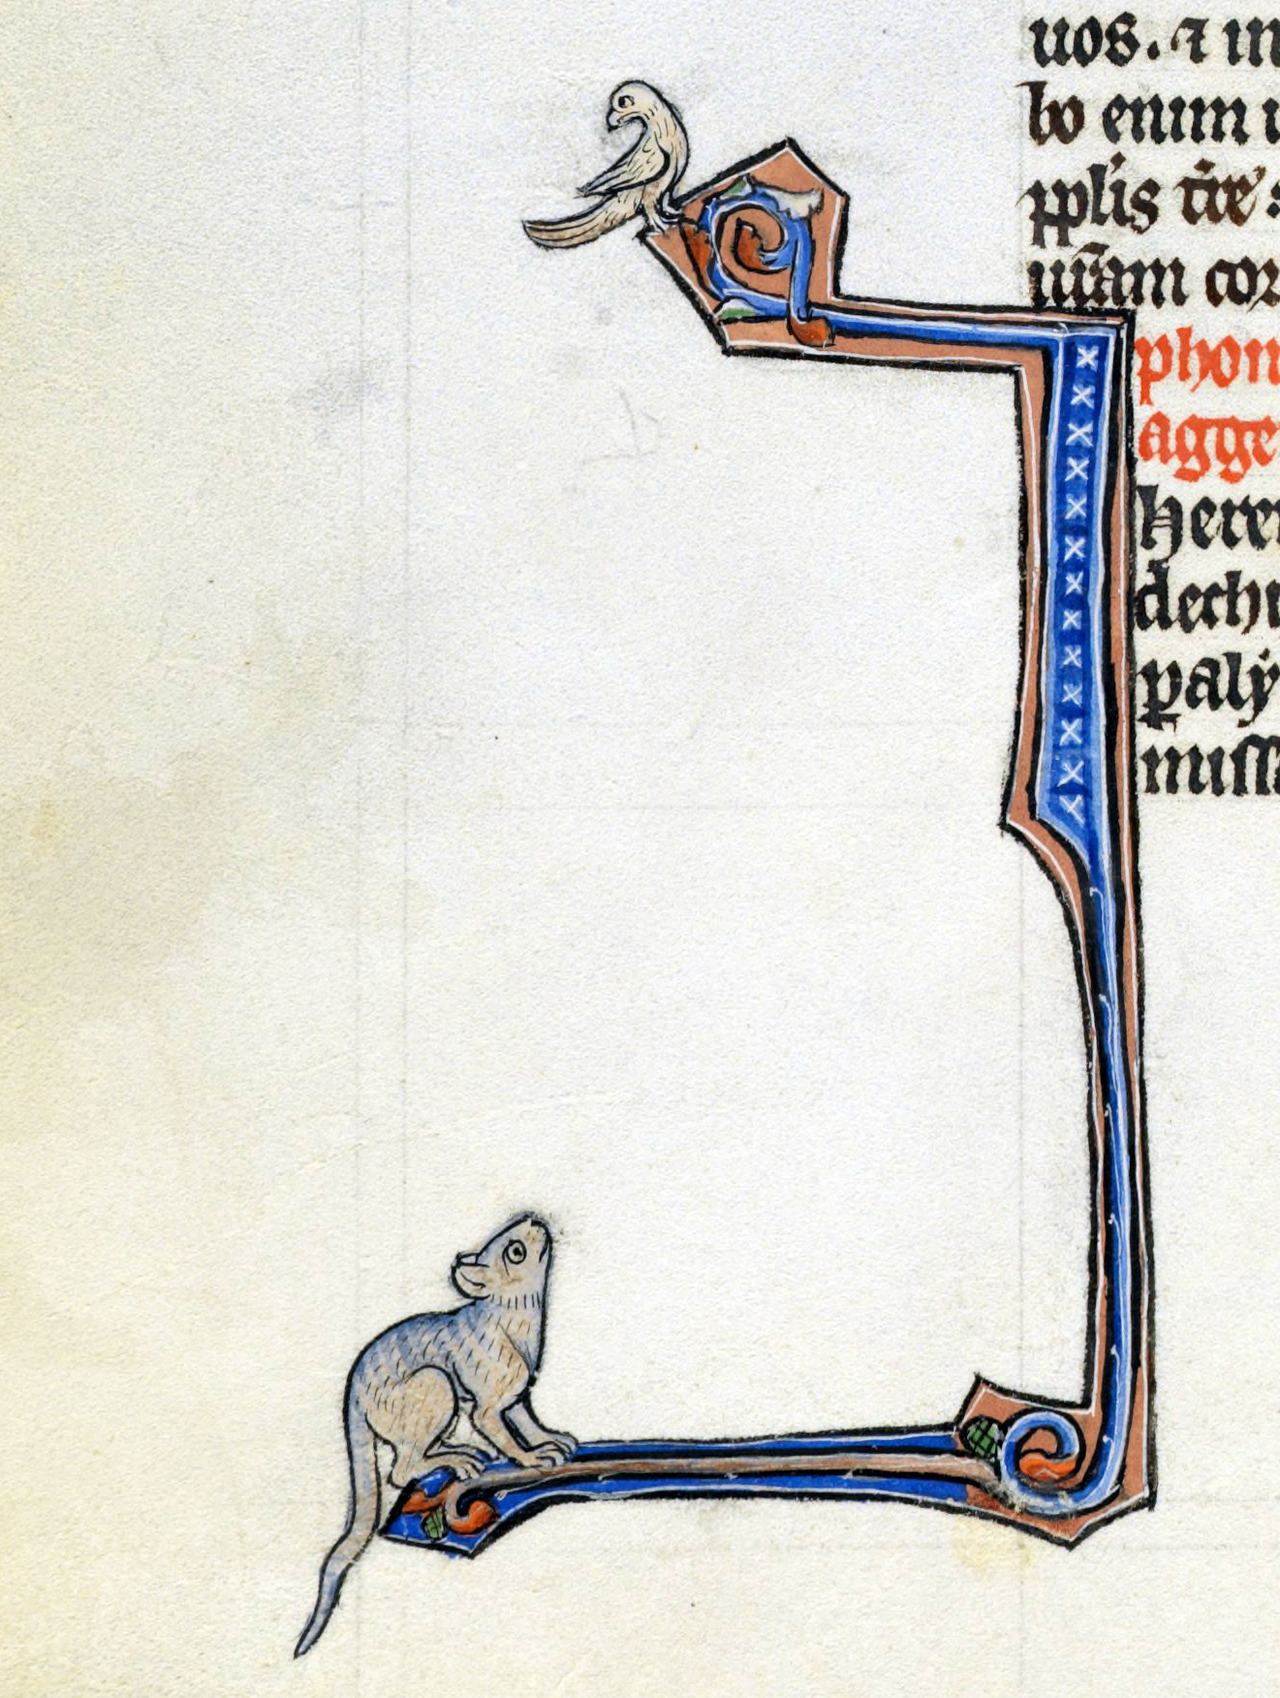 uos. ⁊ in
bo enim
pplis t̃re
ur̃am cor
phon
agge
here
dech
paly
miss